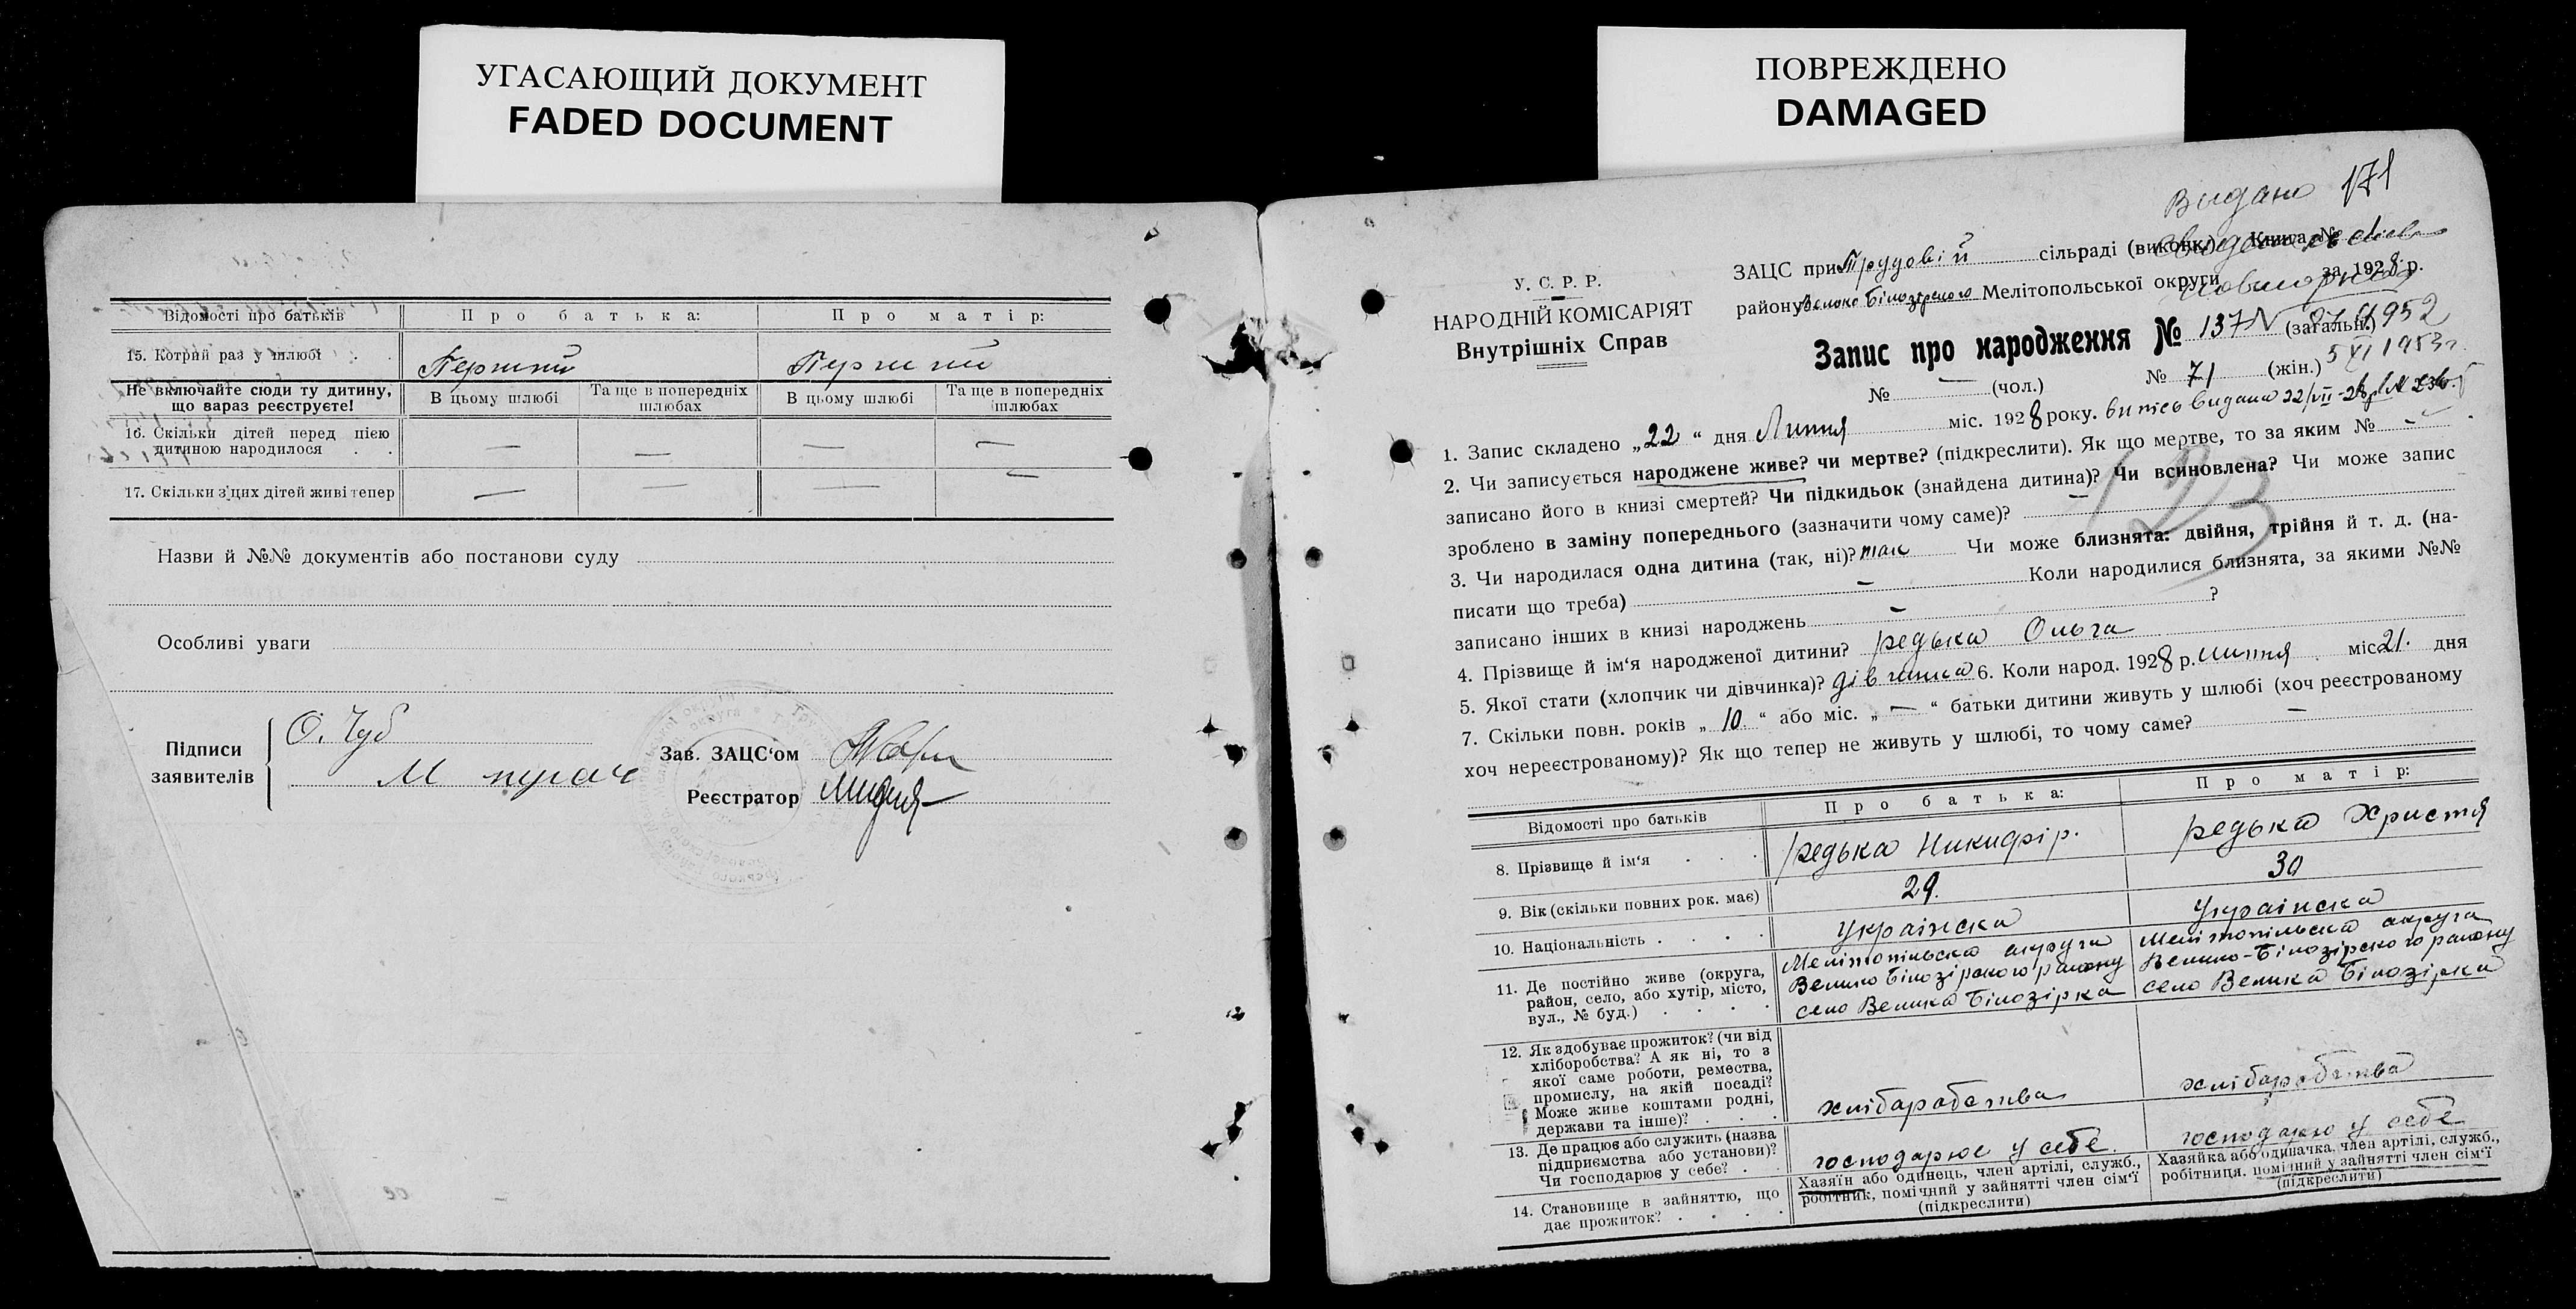 УГАСАЮЩИЙ ДОКУМЕНТ
FADED DOCUMENT
Відомості про батьків Про батька: Про матір:
15. Котрий раз у шлюбі . . Перший Перший
Не включайте сюди ту дитину, що вараз реєструєте! В цьому шлюбі Та ще в попередніх шлюбах В цьому шлюбі Та ще в попередніх шлюбах
16. Скільки дітей перед цією
дитиною народилося . . — — — —
17. Скільки з цих дітей живі тепер — — — —
Назви й №№ документів або постанови суду
Особливі уваги
Підписи
заявителів
О. Чуб
М пугач
Зав. ЗАЦС‘ом
Реєстратор
ПОВРЕЖДЕНО
DAMAGED
Видано 171
У. С. Р. Р.
НАРОДНІЙ КОМІСАРІЯТ
Внутрішніх Справ
ЗАЦС при Трудовій сільраді (виконк.) Книга №
району Велико Білозірского Мелітопольської округи за 1928 р.
Запис про народження № 137 (загальн.)
№ — (чол.) № 71 (жін.) 5 XI 1953 г.
1. Запис складено „22“ дня Липня міс. 1928 року. випись видана 22/VII-28р.
2. Чи записується народжене живе? чи мертве? (підкреслити). Як що мертве, то за яким № —
записано його в книзі смертей? Чи підкидьок (знайдена дитина)? Чи всиновлена? Чи може запис
зроблено в заміну попереднього (зазначити чому саме)? —
3. Чи народилася одна дитина (так, ні)? так Чи може близнята: двійня, трійня й т. д. (на-
писати що треба) — Коли народилися близнята, за якими №№
записано інших в книзі народжень — ?
4. Прізвище й ім‘я народженої дитини? редька Ольга
5. Якої стати (хлопчик чи дівчинка)? дівчина 6. Коли народ. 1928 р. липня міс. 21. дня
7. Скільки повн. років „10“ або міс. „—“ батьки дитини живуть у шлюбі (хоч реєстрованому
хоч нереєстрованому)? Як що тепер не живуть у шлюбі, то чому саме? —
Відомості про батьків Про батька: Про матір:
8. Прізвище й ім‘я . . . редька Никифір. редька Христя
9. Вік (скільки повних рок. має) 29. 30
10. Національність . . . . українска українска
11. Де постійно живе (округа,
район, село, або хутір, місто,
вул., № буд.) . . . .
Мелітопільска округа
Велико Білозірского району
село Велика Білозірка
Мелітопільска округа
Велико-Білозірского району
село Велика Білозірка
12. Як здобуває прожиток? (чи від
хліборобства? А як ні, то з
якої саме роботи, ремества,
промислу, на якій посаді?
Може живе коштами родні,
держави та інше)? . . .
хлібаробства хлібаробства
13. Де працює або служить (назва
підприємства або установи)?
Чи господарює у себе? . .
господарює у себе. господарює у себе
14. Становище в зайняттю, що
дає прожиток? . . . .
Хазяїн або одинець, член артілі, служб.,
робітник, помічний у зайнятті член сім‘ї
(підкреслити)
Хазяйка або одиначка, член артілі, служб.,
робітниця, помічний у зайнятті член сім‘ї
(підкреслити)